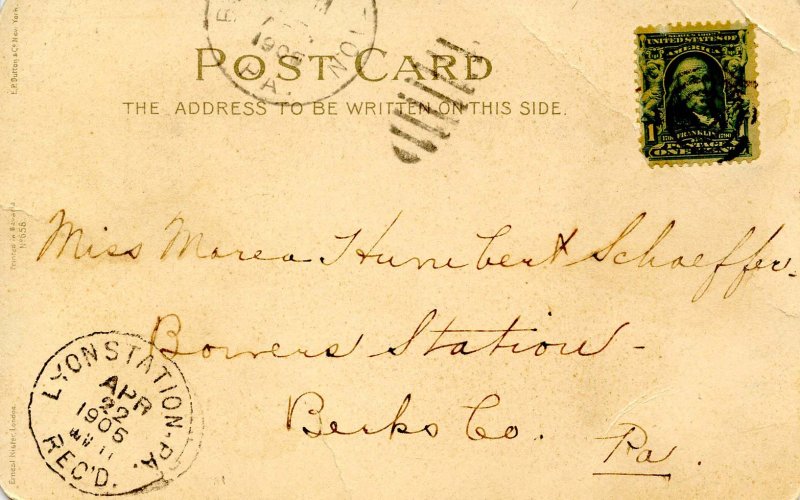 E.P. Dutton & Co. New York.
1905
PA.
POST CARD
THE ADDRESS TO BE WRITTEN ON THIS SIDE.
SERIES 1902
UNITED STATES OF
AMERICA
1
FRANKLIN
POSTAGE
ONE CENT
Printed in Bavaria
No 658
Miss Marea Humbert Schaeffer.
Bowers Station -
Berks Co. Pa.
LYON STATION, PA.
APR
22
1905
11
REC'D.
Ernest Nister, London.